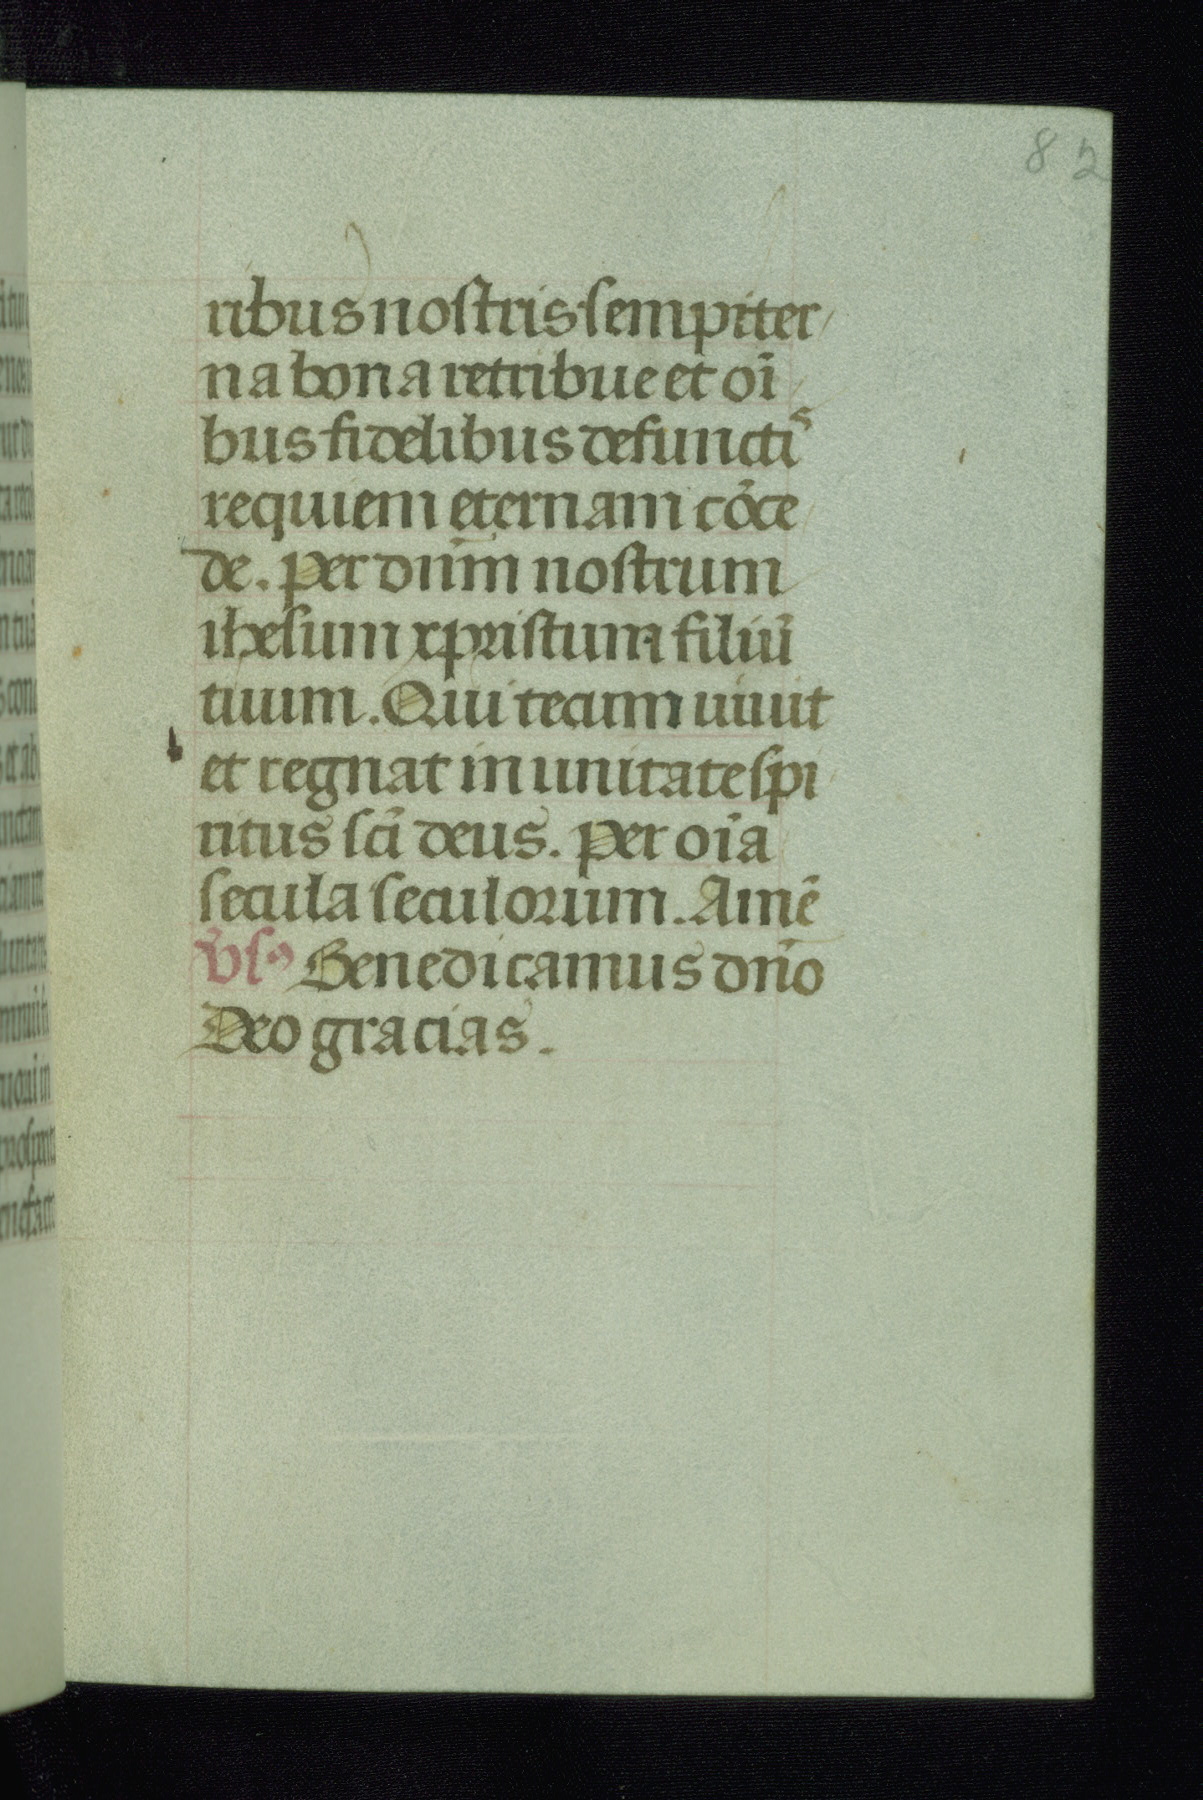 82
ribus nostris sempiter
na bona retribue et oī
bus fidelibus defunctis
requiem eternam cōce
de. Per dn̄m nostrum
ihesum xpristum filiū
tuum. Qui tecum uiuit
et regnat in unitate spi
ritus sc̄i deus. Per oīa
secula seculorum. Amē
Vs Benedicamus dn̄o
Deo gracias.